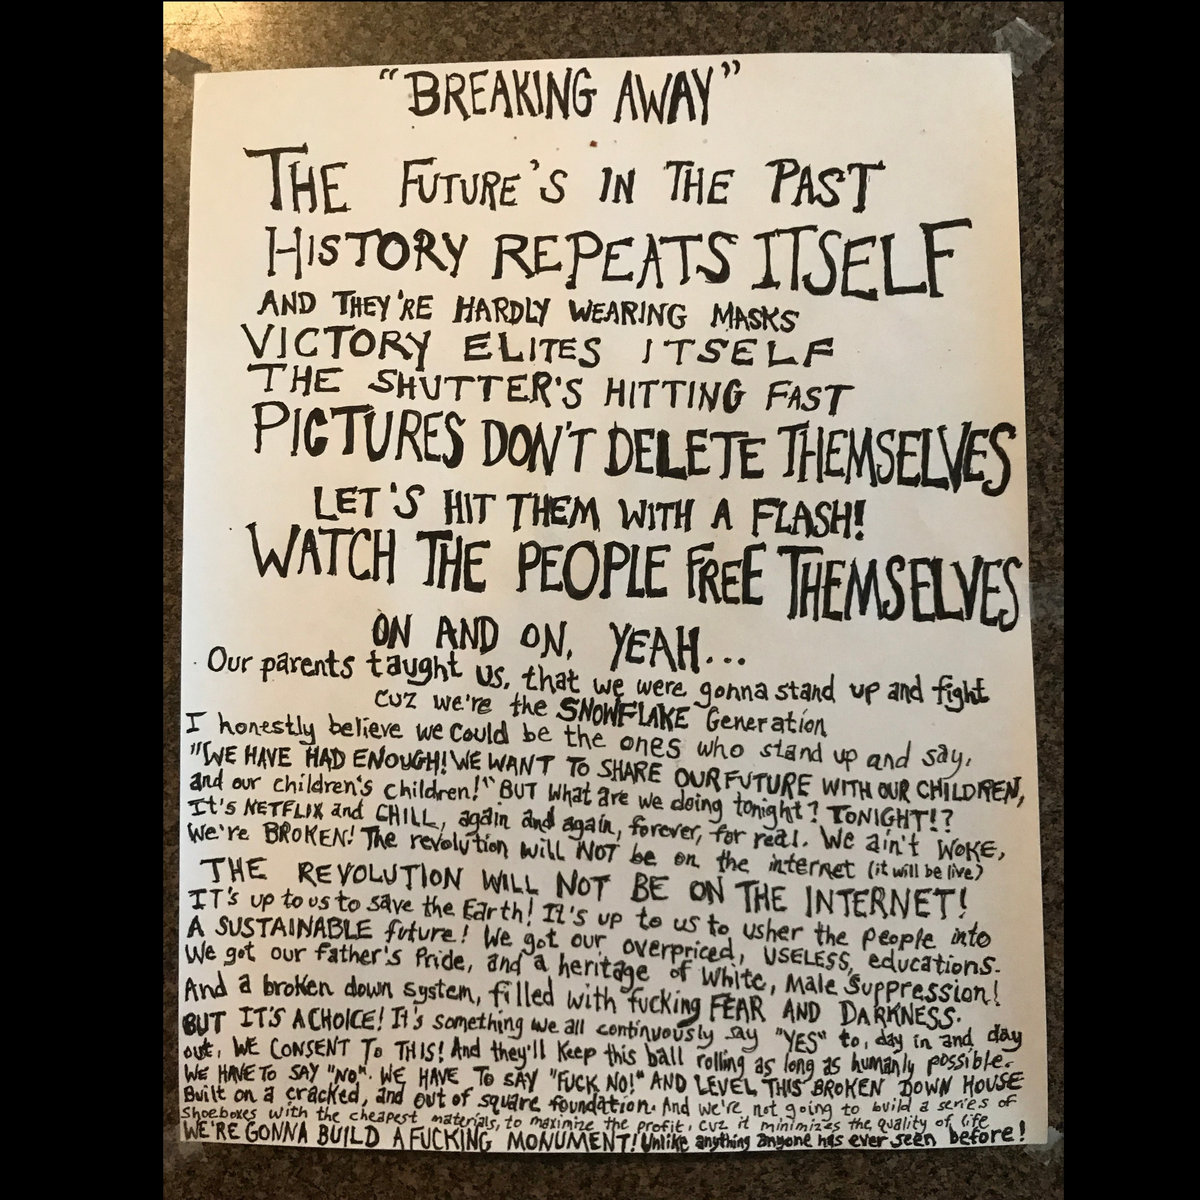 "BREAKING AWAY"
THE FUTURE'S IN THE PAST
HISTORY REPEATS ITSELF
AND THEY'RE HARDLY WEARING MASKS
VICTORY ELITES ITSELF
THE SHUTTER'S HITTING FAST
PICTURES DON'T DELETE THEMSELVES
LET'S HIT THEM WITH A FLASH!
WATCH THE PEOPLE FREE THEMSELVES
ON AND ON, YEAH...
Our parents taught us, that we were gonna stand up and fight
cuz we're the SNOWFLAKE Generation
I honestly believe we could be the ones who stand up and say,
"WE HAVE HAD ENOUGH! WE WANT TO SHARE OUR FUTURE WITH OUR CHILDREN,
and our children's children!" BUT what are we doing tonight? TONIGHT!?
It's NETFLIX and CHILL, again and again, forever, for real. We ain't WOKE,
We're BROKEN! The revolution will NOT be on the internet (it will be live)
THE REVOLUTION WILL NOT BE ON THE INTERNET!
IT's up to us to save the Earth! It's up to us to usher the people into
A SUSTAINABLE future! We got our overpriced, USELESS, educations.
We got our father's Pride, and a heritage of White, Male Suppression!
And a broken down system, filled with fucking FEAR AND DARKNESS.
BUT IT'S A CHOICE! It's something we all continuously say "YES" to, day in and day
out, WE CONSENT TO THIS! And they'll keep this ball rolling as long as humanly possible.
WE HAVE TO SAY "NO". WE HAVE TO SAY "FUCK NO!" AND LEVEL THIS BROKEN DOWN HOUSE
Built on a cracked, and out of square foundation. And we're not going to build a series of
Shoeboxes with the cheapest materials, to maximize the profit, cuz it minimizes the quality of life
WE'RE GONNA BUILD A FUCKING MONUMENT! Unlike anything anyone has ever seen before!